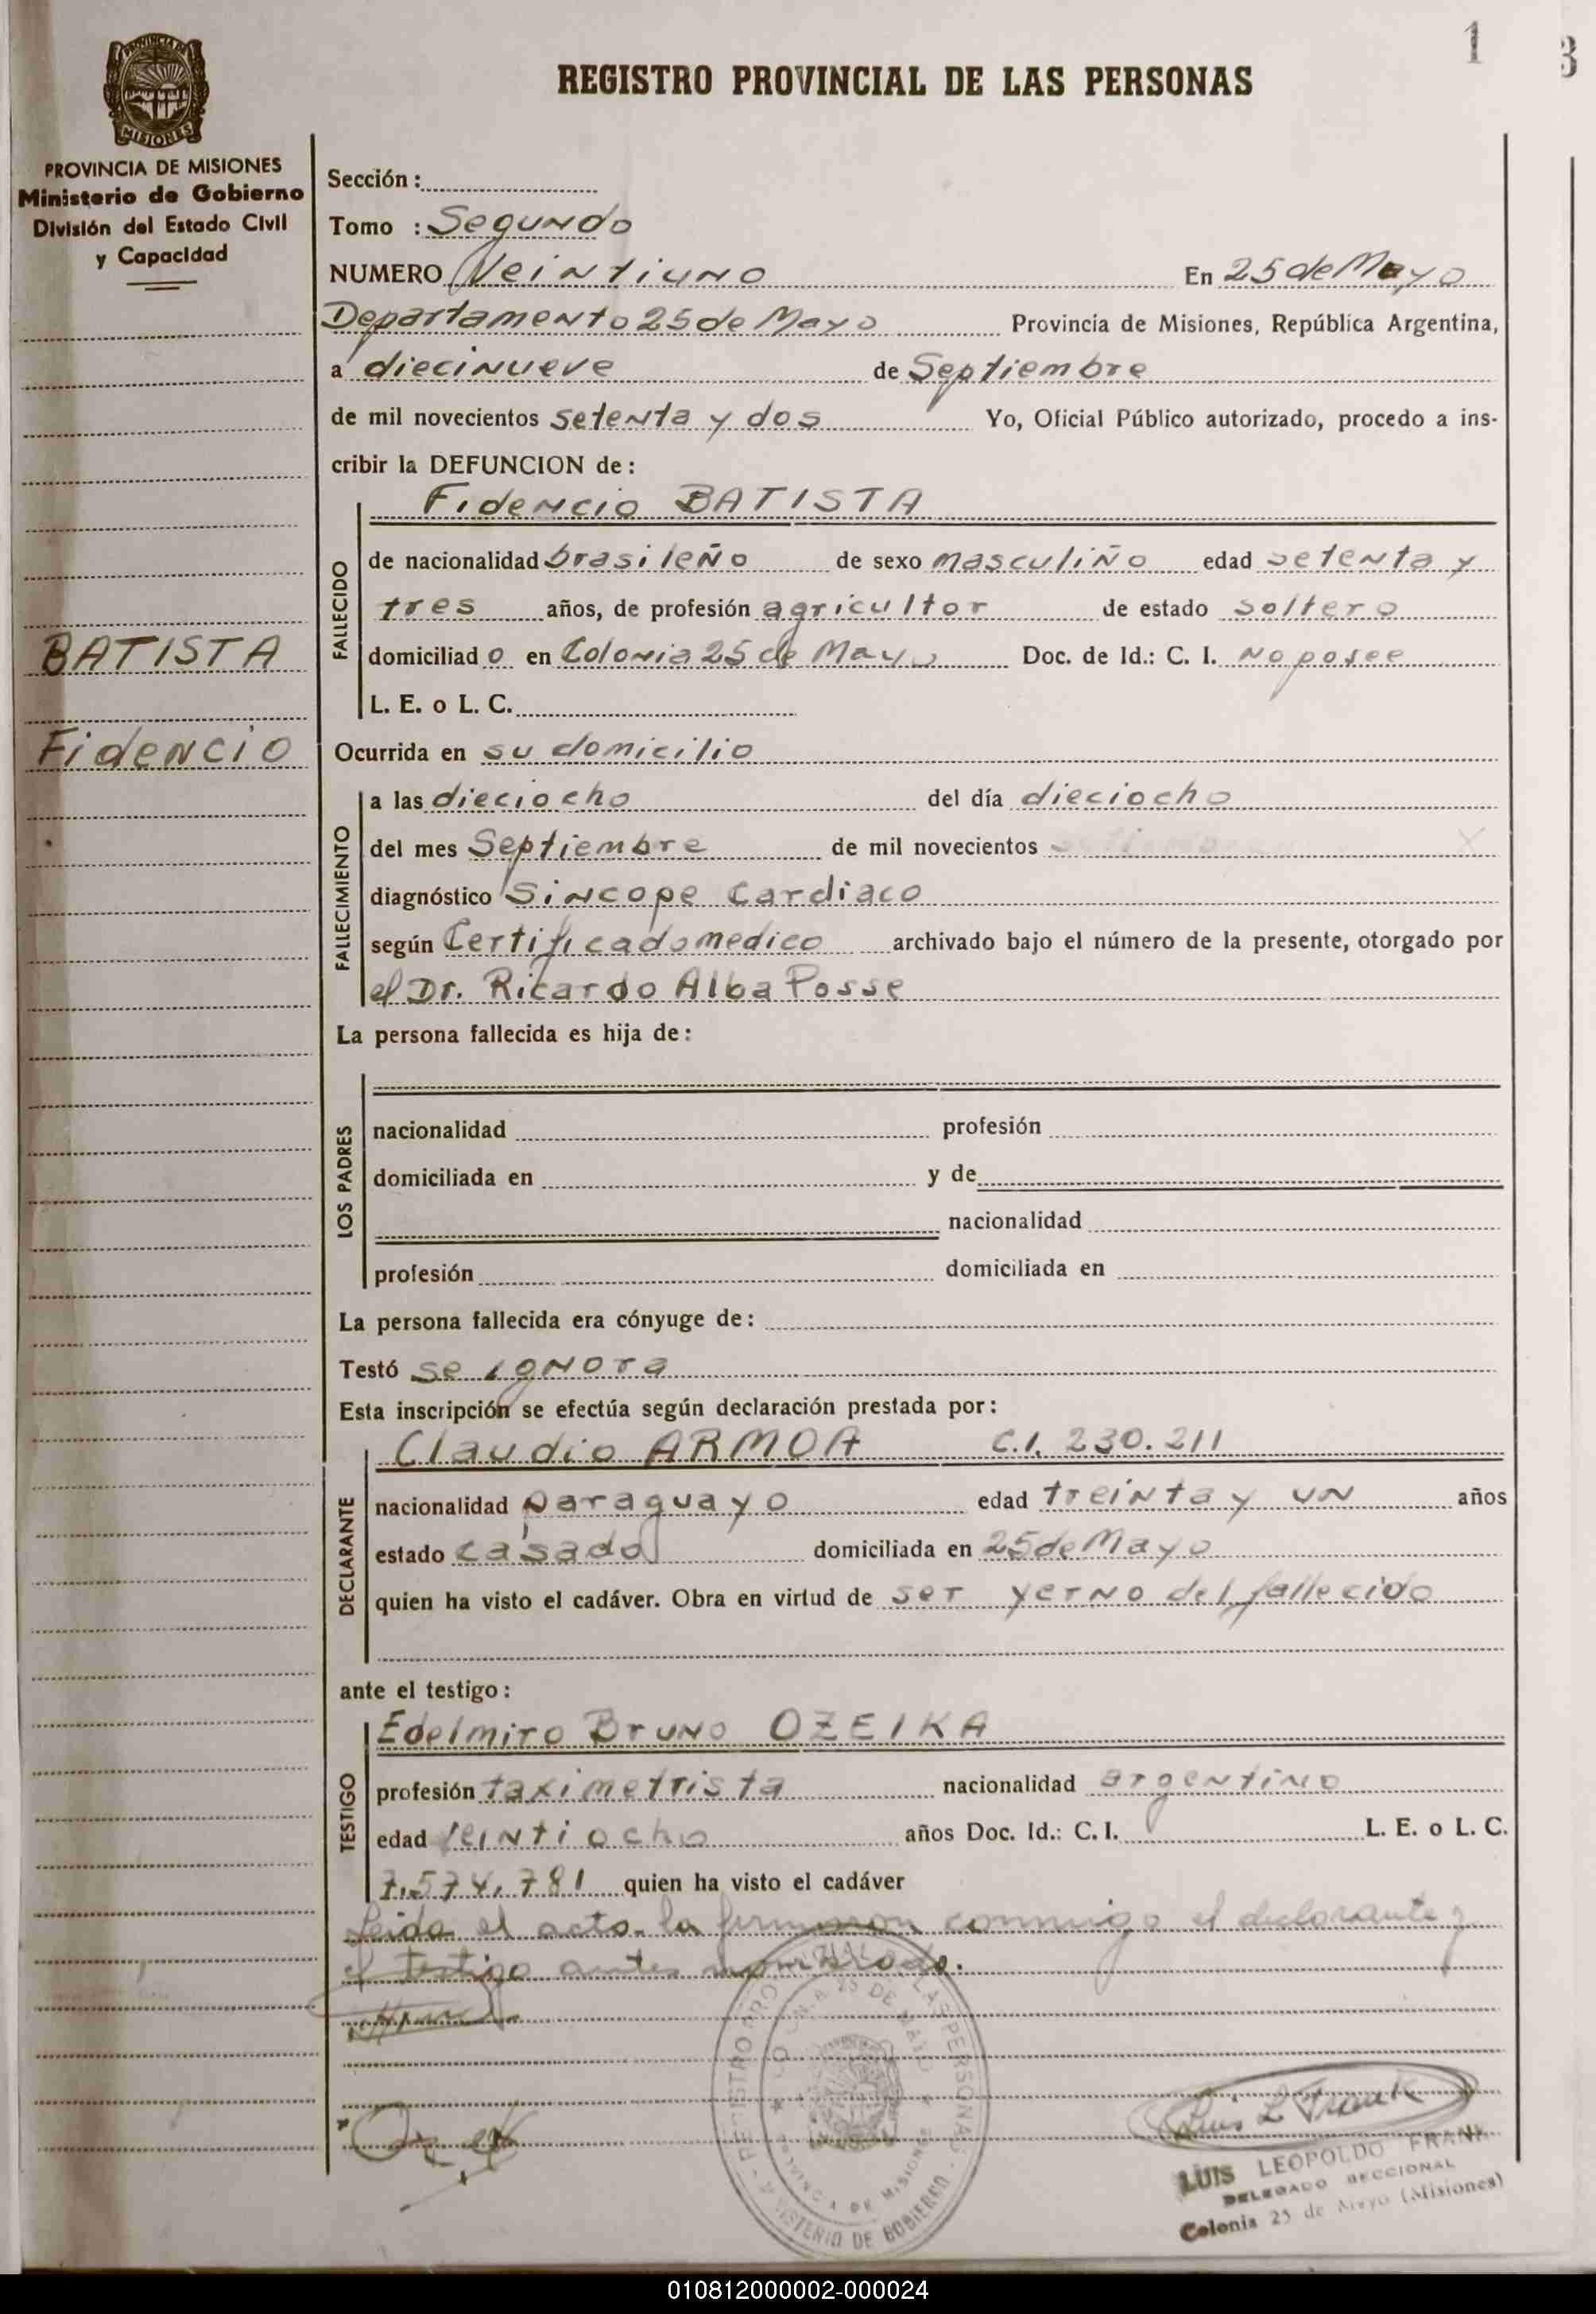 1
3
REGISTRO PROVINCIAL DE LAS PERSONAS
MISIONES
PROVINCIA DE MISIONES
Ministerio de Gobierno
División del Estado Civil
y Capacidad
BATISTA
Fidencio
Sección :
Tomo : Segundo
NUMERO Veintiuno En 25 de Mayo
Departamento 25 de Mayo Provincia de Misiones, República Argentina,
a diecinueve de Septiembre
de mil novecientos setenta y dos Yo, Oficial Público autorizado, procedo a ins-
cribir la DEFUNCION de :
Fidencio BATISTA
FALLECIDO
de nacionalidad brasileño de sexo masculiño edad setenta y
tres años, de profesión agricultor de estado soltero
domiciliad o en Colonia 25 de Mayo Doc. de Id.: C. I. No posee
L. E. o L. C.
Ocurrida en su domicilio
FALLECIMIENTO
a las dieciocho del día dieciocho
del mes Septiembre de mil novecientos
diagnóstico Sincope Cardiaco
según Certificado medico archivado bajo el número de la presente, otorgado por
el Dr. Ricardo Alba Posse
La persona fallecida es hija de :
LOS PADRES
nacionalidad profesión
domiciliada en y de
nacionalidad
profesión domiciliada en
La persona fallecida era cónyuge de :
Testó se ignora
Esta inscripción se efectúa según declaración prestada por :
Claudio ARMOA C.I. 230.211
DECLARANTE
nacionalidad paraguayo edad treinta y un años
estado casado domiciliada en 25 de Mayo
quien ha visto el cadáver. Obra en virtud de ser yerno del fallecido
ante el testigo :
Edelmiro Bruno OZEIKA
TESTIGO
profesión taximetrista nacionalidad argentino
edad veintiocho años Doc. Id.: C. I. L. E. o L. C.
7.574.781 quien ha visto el cadáver
Leida el acta la firmaron conmigo el declarante y
el testigo antes nombrado.
REGISTRO PROVINCIAL DE LAS PERSONAS
25 DE MAYO
PROVINCIA DE MISIONES
MINISTERIO DE GOBIERNO
Luis L Frank
LUIS LEOPOLDO FRANK
DELEGADO SECCIONAL
Colonia 25 de Mayo (Misiones)
010812000002-000024